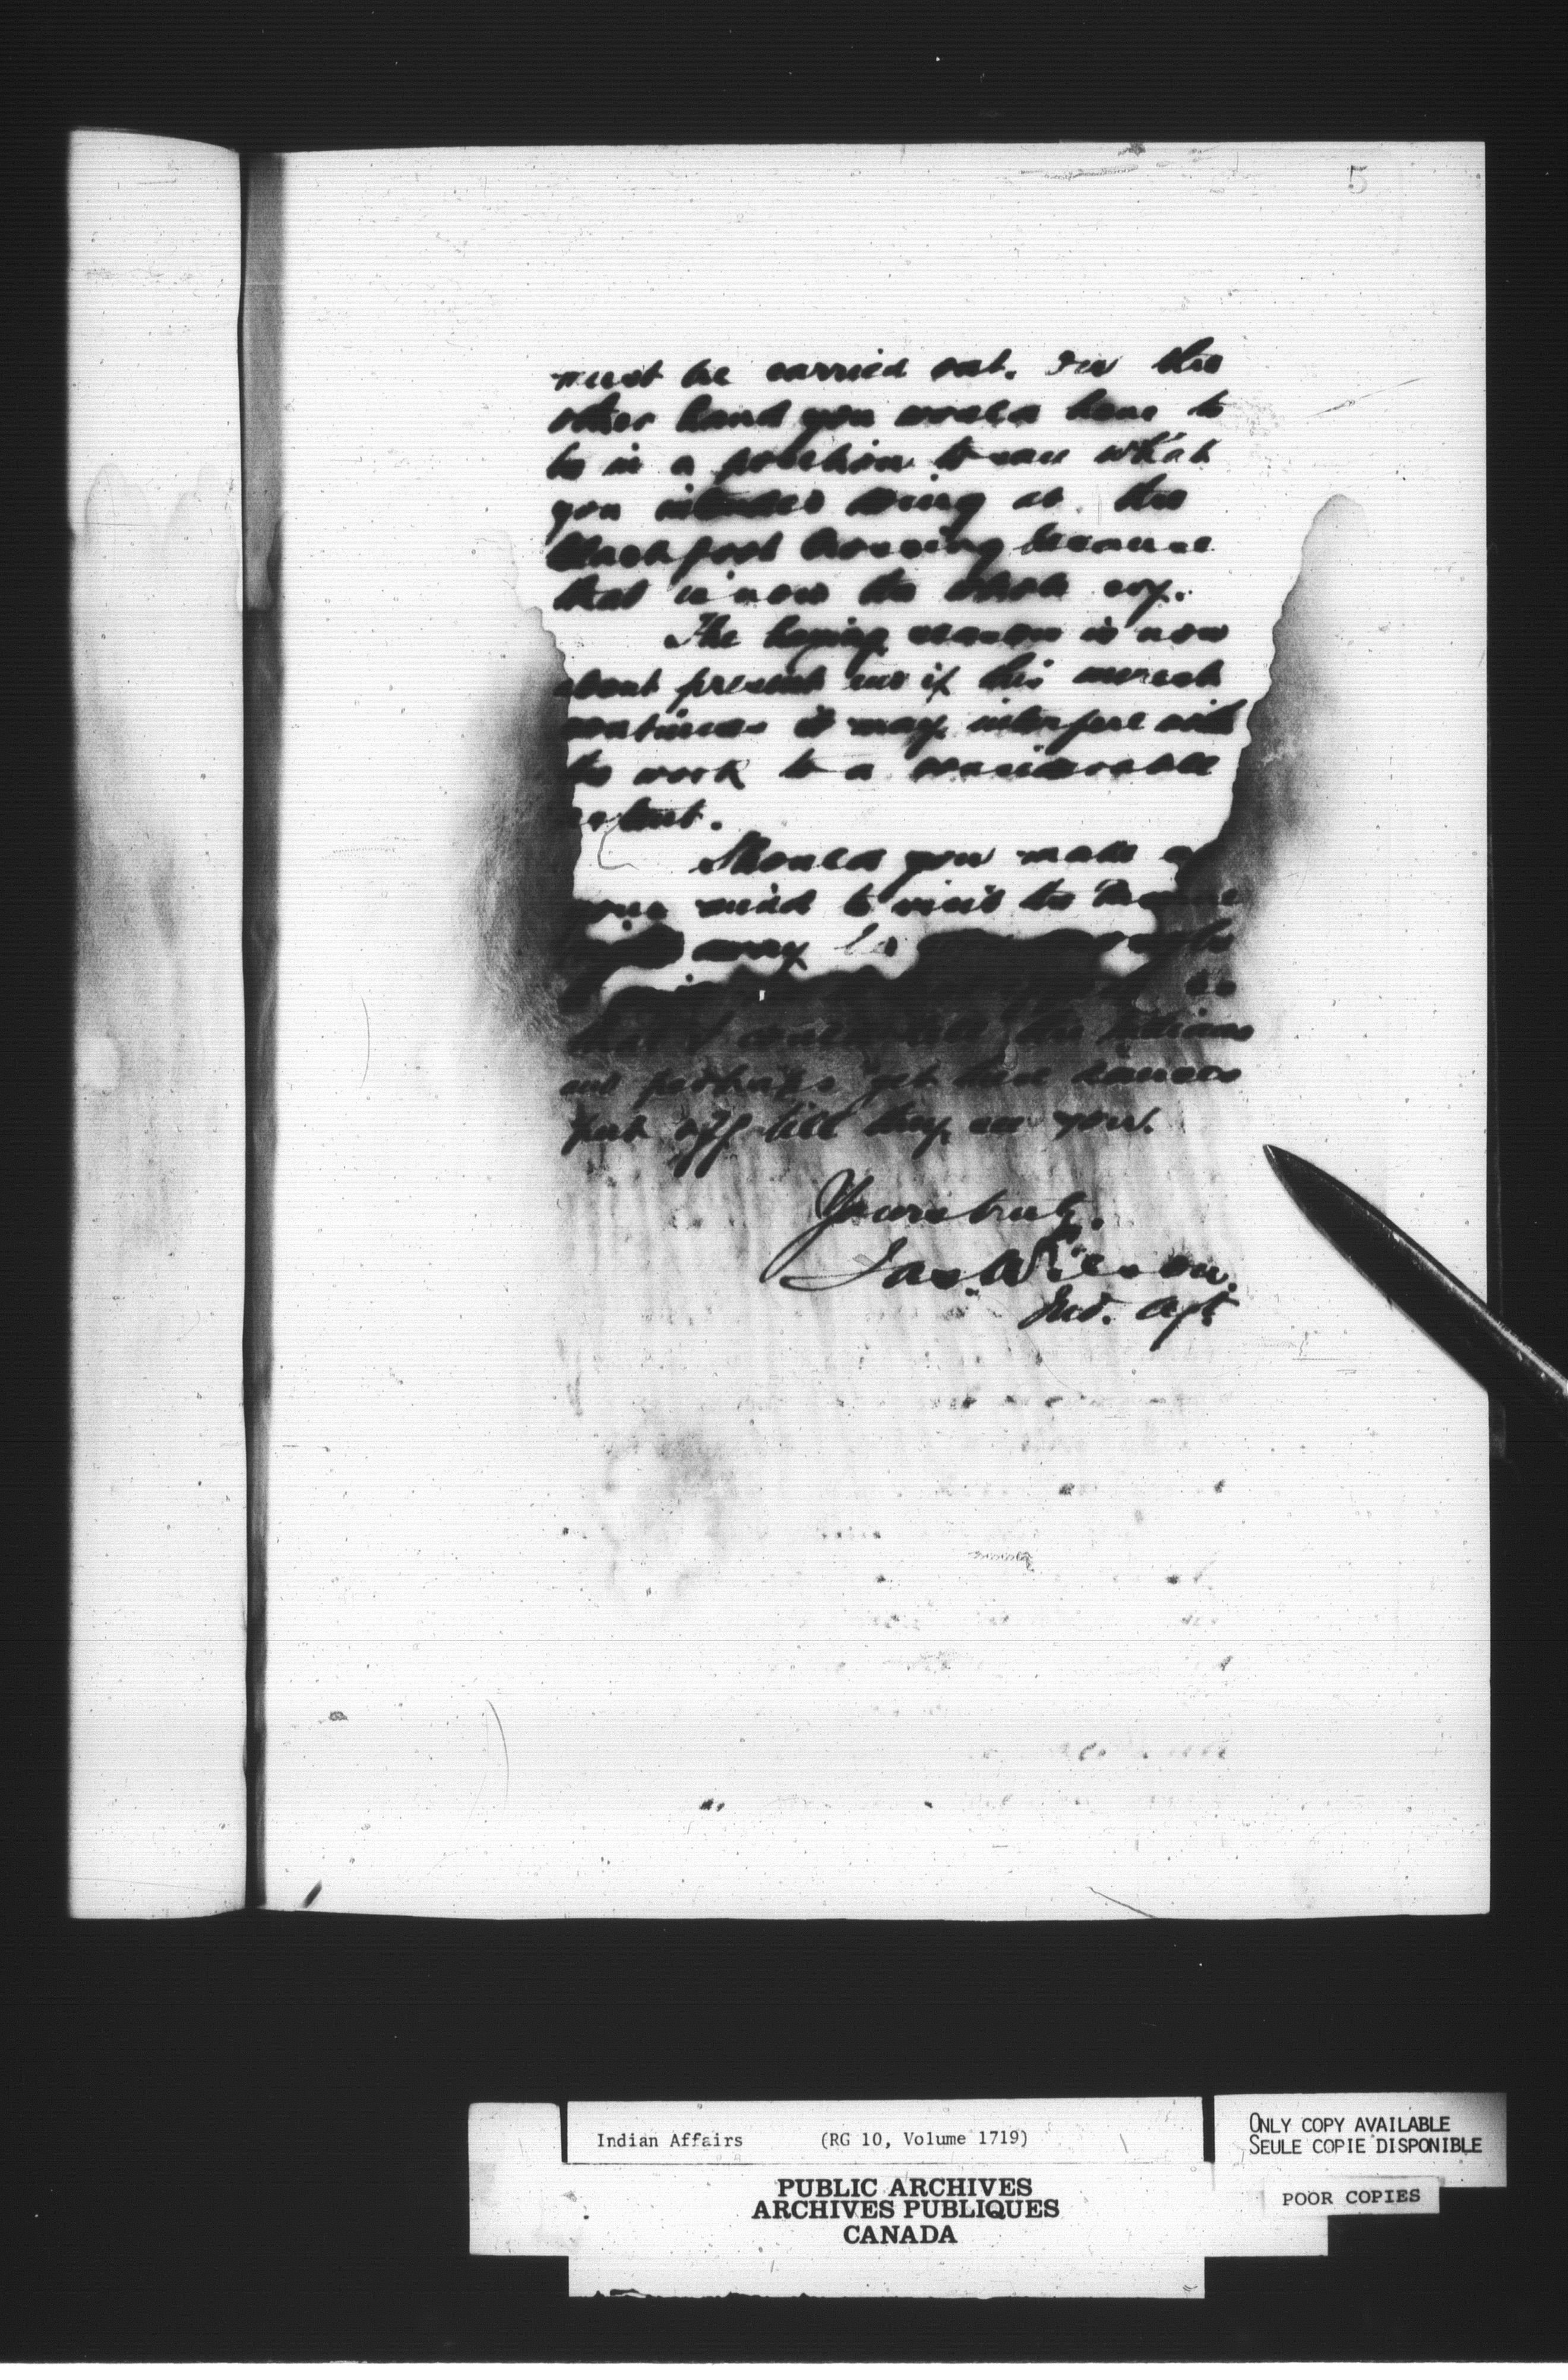 5
must be carried out. On the
other hand you would have to
be in a position to say what
you intended doing at the
Blackfoot Crossing because
that is now the whole cry.
The haying season is now
about present and if this unrest
continues it may interfere with
the work to a considerable
extent.
Should you make up
your mind to visit the
may be
so
that I could tell the Indians
and perhaps get their dances
put off till they see you.
Yours truly.
Jas. Wilson.
Ind. Agt
Indian Affairs (RG 10, Volume 1719)
PUBLIC ARCHIVES
ARCHIVES PUBLIQUES
CANADA
ONLY COPY AVAILABLE
SEULE COPIE DISPONIBLE
POOR COPIES